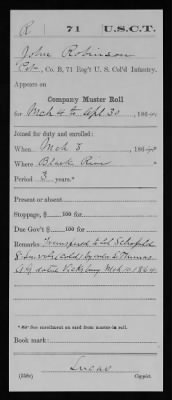 R 71 U.S.C.T.
John Robinson
Pvt., Co. B, 71 Reg't U. S. Col'd Infantry.
Appears on
Company Muster Roll
for Mch 4 to Apl 30, 1864.
Joined for duty and enrolled:
When Mch 3, 1864*
Where Black River
Period 3 years.*
Present or absent
Stoppage, $ 100 for
Due Gov't $ 100 for
Remarks: Transferred to Col Schofield
by order Thomas
A G dated Vicksburg Mch 4 1864
*See enrollment on card from muster-in roll.
Book mark:
Lucas
(358c) Copyist.